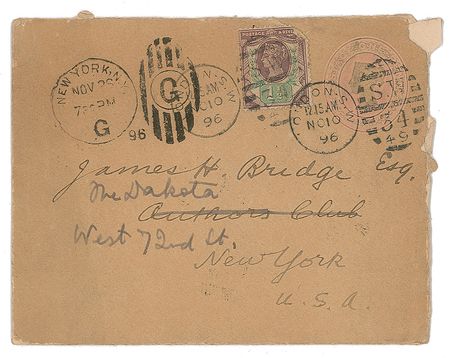 NEW YORK, N.Y.
NOV 26
G
96
G
LONDON. S.W
NO 10
96
POSTAGE AND REVENUE
LONDON. S.W
12.15AM
NO 10
96
S.W
34
49
James H. Bridge Esq.
The Dakota
Authors Club
West 72nd St.
New York
U.S.A.